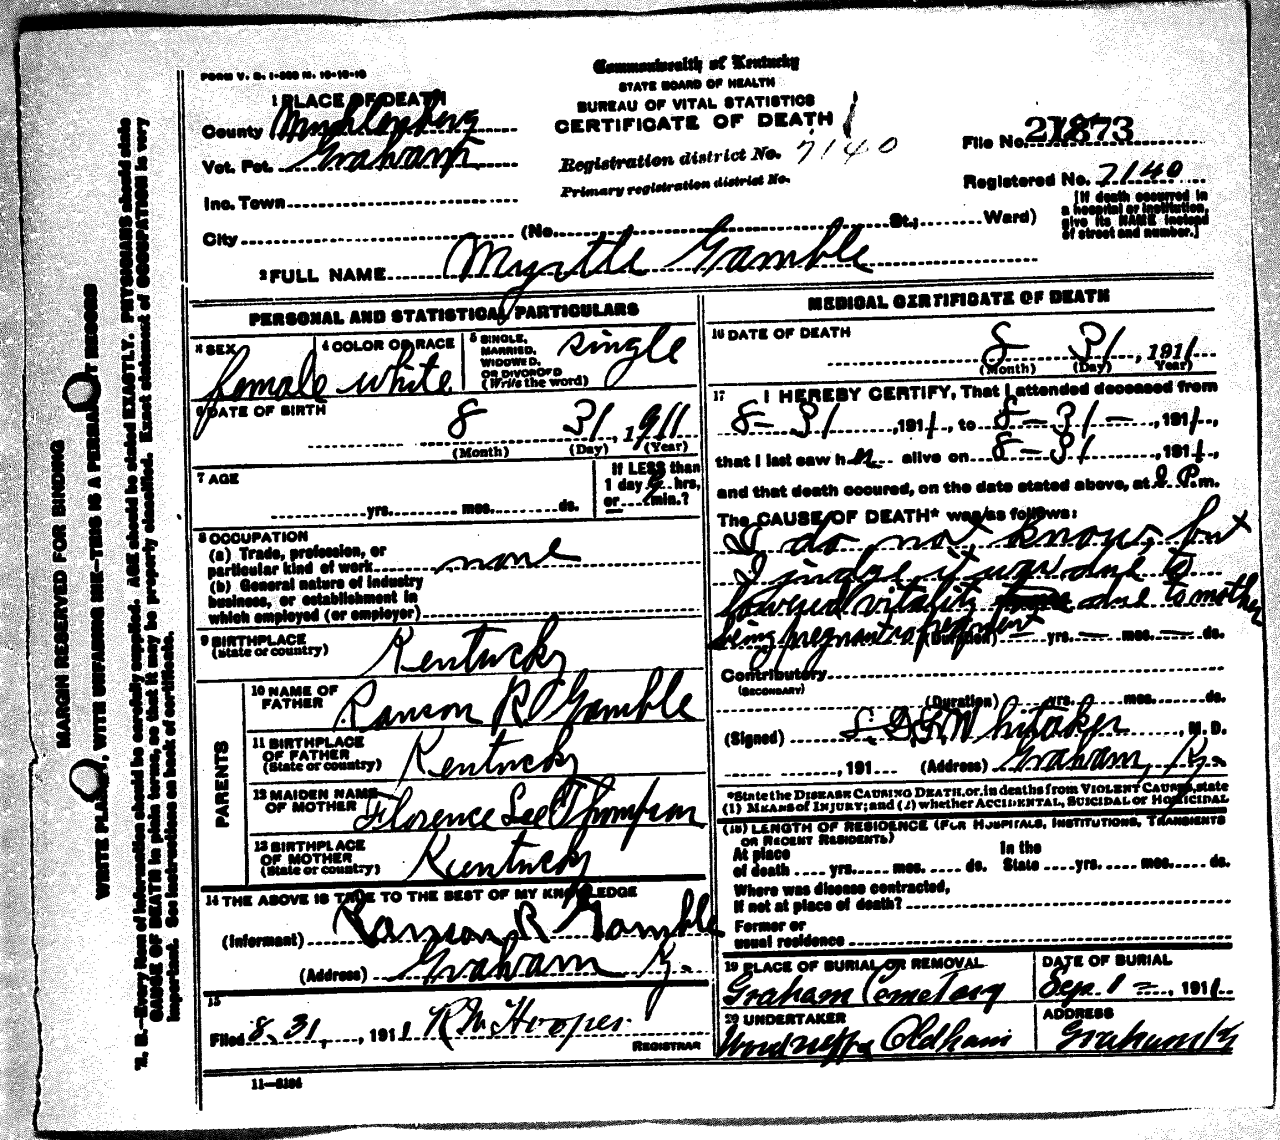 FORM V. S. 1-
Commonwealth of Kentucky
STATE BOARD OF HEALTH
BUREAU OF VITAL STATISTICS
CERTIFICATE OF DEATH
1 PLACE OF DEATH
County Muhlenberg
Vot. Pct. Graham
Inc. Town
City
(No. St.; Ward)
Registration district No. 7140
Primary registration district No.
File No. 21873
Registered No. 7140
[If death occurred in
a hospital or institution,
give its NAME instead
of street and number.]
2 FULL NAME Myrtle Gamble
PERSONAL AND STATISTICAL PARTICULARS
3 SEX
female
4 COLOR OR RACE
white
5 SINGLE,
MARRIED,
WIDOWED,
OR DIVORCED
(Write the word)
single
6 DATE OF BIRTH
8 31, 1911
(Month) (Day) (Year)
7 AGE
yrs. mos. ds.
If LESS than
1 day hrs,
or min.?
8 OCCUPATION
(a) Trade, profession, or
particular kind of work none
(b) General nature of industry
business, or establishment in
which employed (or employer)
9 BIRTHPLACE
(State or country) Kentucky
PARENTS
10 NAME OF
FATHER Ranson R Gamble
11 BIRTHPLACE
OF FATHER
(State or country) Kentucky
12 MAIDEN NAME
OF MOTHER Florence Lee Thompson
13 BIRTHPLACE
OF MOTHER
(State or country) Kentucky
14 THE ABOVE IS TRUE TO THE BEST OF MY KNOWLEDGE
(Informant) Ranson R Gamble
(Address) Graham Ky.
15
Filed 8. 31, 1911 R M Hooper
REGISTRAR
11—
MEDICAL CERTIFICATE OF DEATH
16 DATE OF DEATH
8 31, 1911
(Month) (Day) (Year)
17 I HEREBY CERTIFY, That I attended deceased from
8 - 31, 1911, to 8 - 31 -, 1911,
that I last saw her alive on 8 - 31, 1911,
and that death occured, on the date stated above, at P.m.
The CAUSE OF DEATH* was as follows:
I do not know, but
I judge it was due to
lowered vitality due to mother
being pregnant
(Duration) — yrs. — mos. — ds.
Contributory
(SECONDARY)
(Duration) yrs. mos. ds.
(Signed) Whitaker, M. D.
, 191 (Address) Graham, Ky.
*State the DISEASE CAUSING DEATH, or, in deaths from VIOLENT CAUSES, state
(1) MEANS OF INJURY; and (2) whether ACCIDENTAL, SUICIDAL or HOMICIDAL
(18) LENGTH OF RESIDENCE (FOR HOSPITALS, INSTITUTIONS, TRANSIENTS
OR RECENT RESIDENTS)
At place
of death yrs. mos. ds.
In the
State yrs. mos. ds.
Where was disease contracted,
If not at place of death?
Former or
usual residence
19 PLACE OF BURIAL OR REMOVAL
Graham Cemetery
DATE OF BURIAL
Sep. 1 -, 1911
20 UNDERTAKER
Oldham
ADDRESS
Graham Ky
MARGIN RESERVED FOR BINDING
WRITE PLAINLY, WITH UNFADING INK—THIS IS A PERMANENT RECORD
N. B.—Every item of information should be carefully supplied. AGE should be stated EXACTLY. PHYSICIANS should state
CAUSE OF DEATH in plain terms, so that it may be properly classified. Exact statement of OCCUPATION is very
important. See instructions on back of certificate.